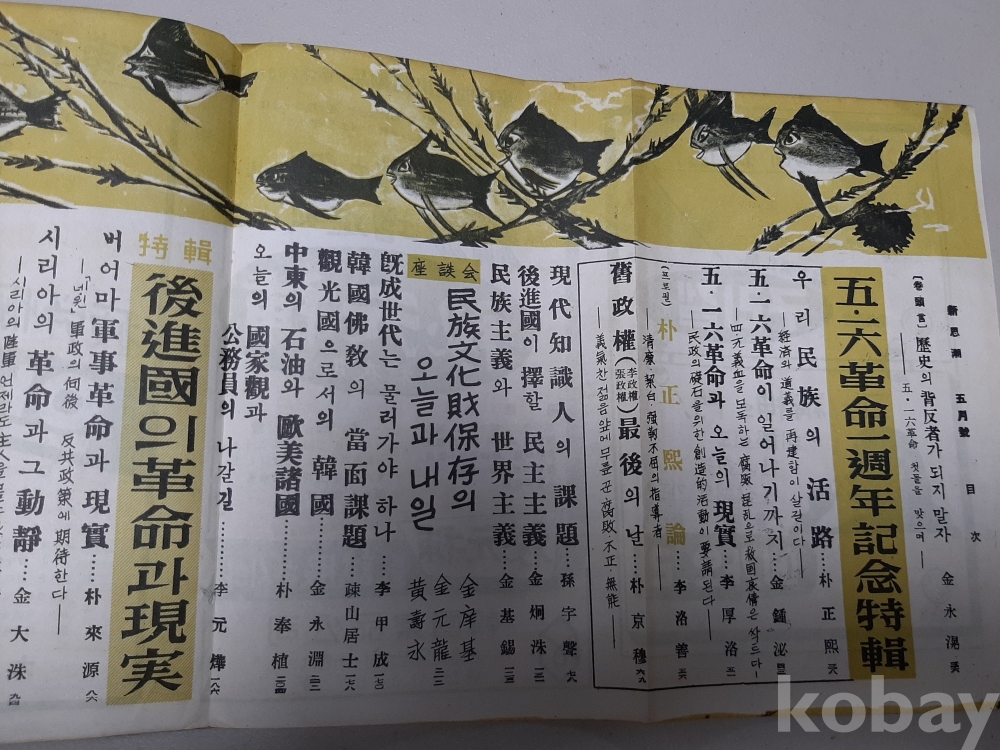 新思潮 五月號 目次
[卷頭言] 歷史의 背反者가 되지 말자 金永滉
—五·一六革命 첫돌을 맞으며—
五·一六革命一週年記念特輯
우리民族의 活路 … 朴正熙
—經済와 道義를 再建함이 살길이다—
五·一六革命이 일어나기까지 … 金鍾泌
五·一六革命과 오늘의 現實 … 李厚洛
—民政의 礎石을 위한 創造的 活動이 要請된다—
(프로필) 朴正熙論 … 李洛善
—清廉·潔白·強靭不屈의 指導者—
舊政權(李政權 張政權) 最後의 날 … 朴京穆
—義氣찬 젊음 앞에 무릎 꾼 腐敗 不正 無能—
現代知識人의 課題 … 孫宇聲
後進國이 擇할 民主主義 … 金炯洙
民族主義와 世界主義 … 金基錫
座談会
民族文化財保存의 오늘과 내일
金庠基
金元龍
黃壽永
旣成世代는 물러가야 하나 … 李甲成
韓國佛敎의 當面課題 … 疎山居士
觀光國으로서의 韓國 … 金永淵
中東의 石油와 歐美諸國 … 朴奉植
오늘의 國家觀과
公務員의 나갈 길 … 李元燁
特輯
後進國의 革命과 現実
버어마 軍事革命과 現實 … 朴來源
—「네윈」軍政의 何後 反共政策에 期待한다—
시리아의 革命과 그 動靜 … 金大洙